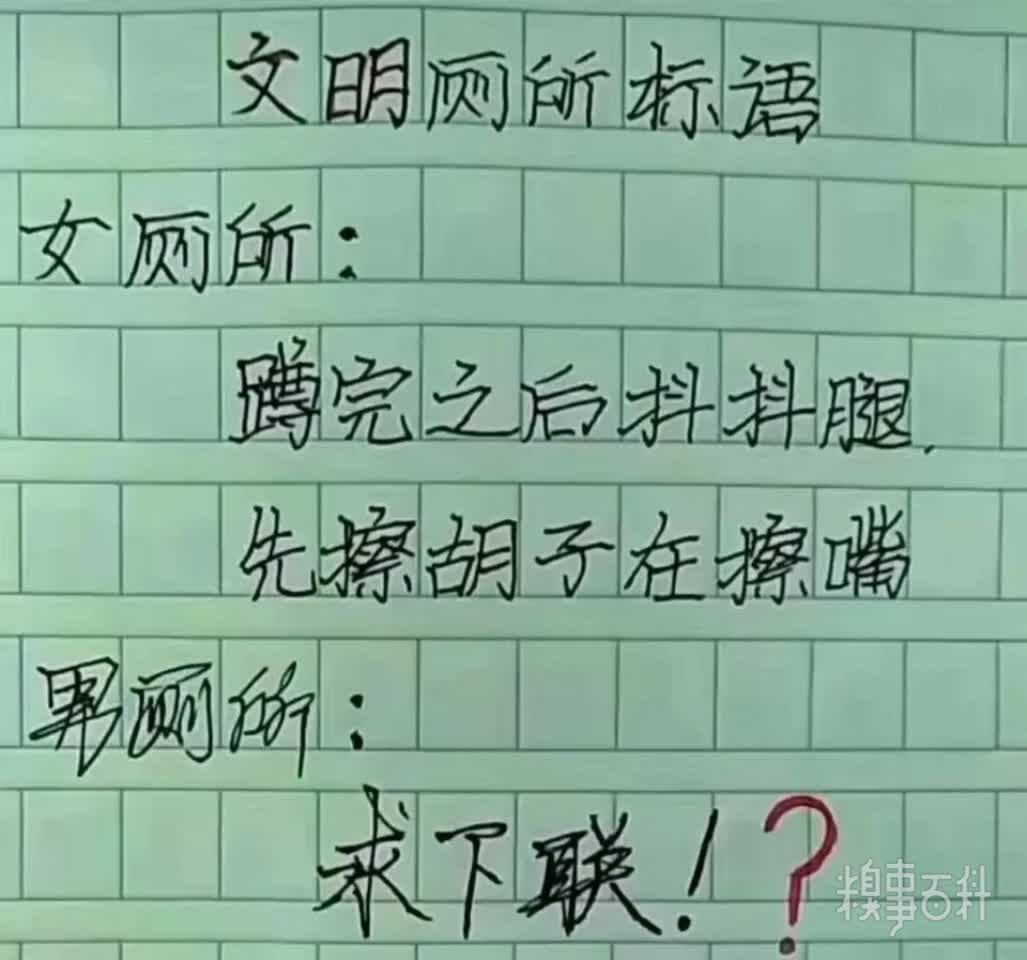 文明厕所标语
女厕所：
蹲完之后抖抖腿.
先擦胡子在擦嘴
男厕所：
求下联！？
糗事百科